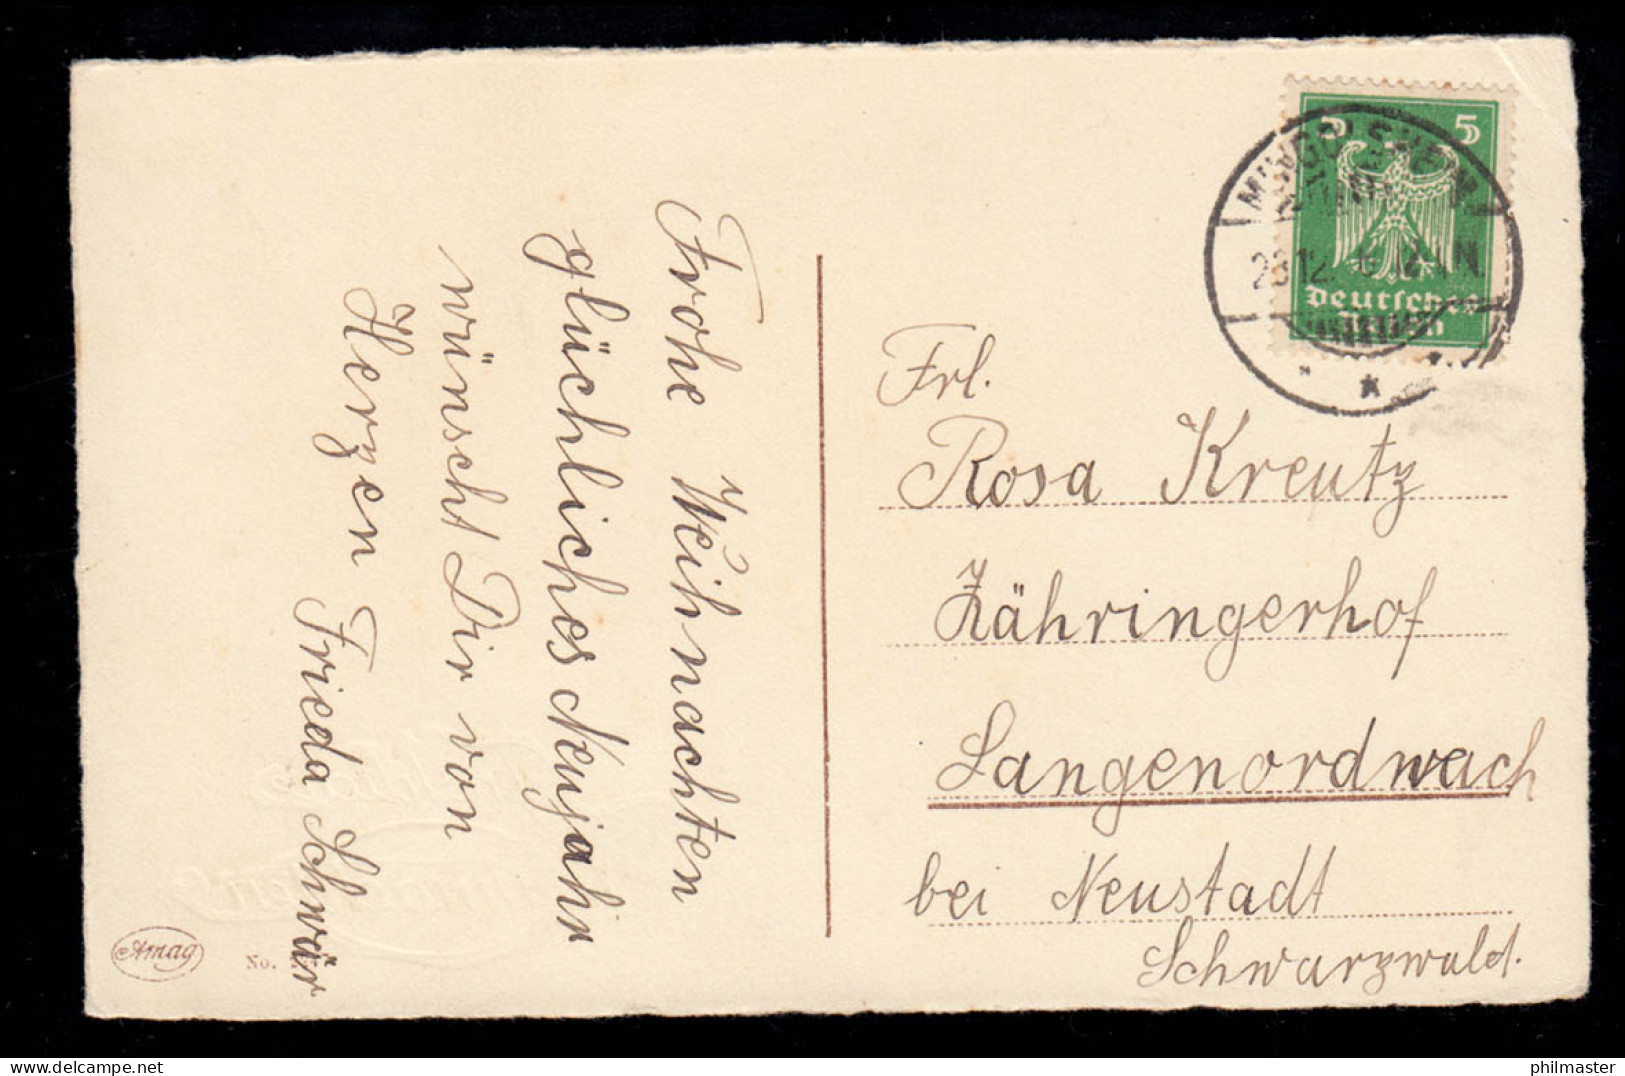 Frohe Weihnachten
glückliches Neujahr
wünscht Dir von
Herzen Frieda Schwär
Amag
No.
5 5
MINGOLSHEIM
Deutsches
Reich
Frl.
Rosa Kreutz
Zähringerhof
Langenordwach
bei Neustadt
Schwarzwald.
philmaster